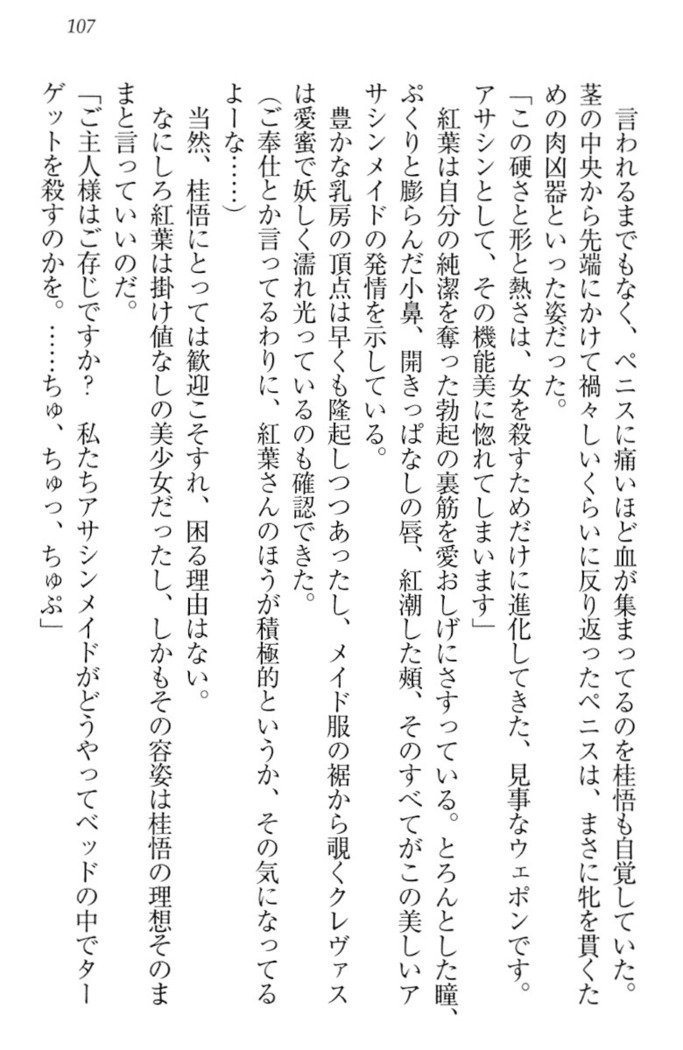 107
言われるまでもなく、ペニスに痛いほど血が集まってるのを桂悟も自覚していた。
茎の中央から先端にかけて禍々しいくらいに反り返ったペニスは、まさに牝を貫くた
めの肉凶器といった姿だった。
「この硬さと形と熱さは、女を殺すためだけに進化してきた、見事なウェポンです。
アサシンとして、その機能美に惚れてしまいます」
紅葉は自分の純潔を奪った勃起の裏筋を愛おしげにさすっている。とろんとした瞳、
ぷくりと膨らんだ小鼻、開きっぱなしの唇、紅潮した頰、そのすべてがこの美しいア
サシンメイドの発情を示している。
豊かな乳房の頂点は早くも隆起しつつあったし、メイド服の裾から覗くクレヴァス
は愛蜜で妖しく濡れ光っているのも確認できた。
（ご奉仕とか言ってるわりに、紅葉さんのほうが積極的というか、その気になってる
よーな……）
当然、桂悟にとっては歓迎こそすれ、困る理由はない。
なにしろ紅葉は掛け値なしの美少女だったし、しかもその容姿は桂悟の理想そのま
まと言っていいのだ。
「ご主人様はご存じですか？　私たちアサシンメイドがどうやってベッドの中でター
ゲットを殺すのかを。……ちゅ、ちゅっ、ちゅぷ」